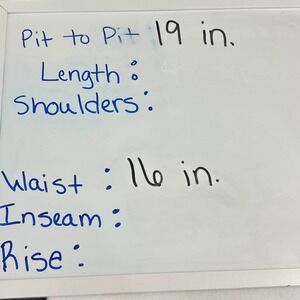 Pit to Pit: 19 in.
Length:
Shoulders:
Waist: 16 in.
Inseam:
Rise: